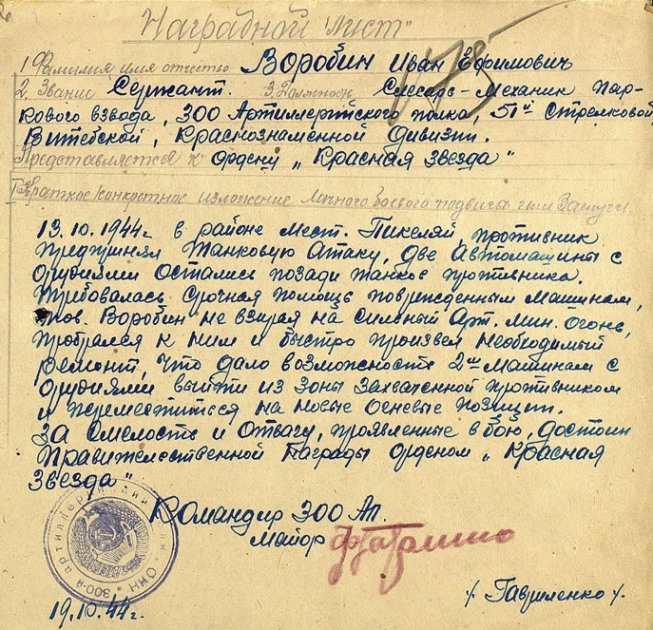 Наградной лист
1 Фамилия имя отчество Воробин Иван Ефимович
2. Звание Сержант. 3. Должность Слесарь-Механик Пар-
кового взвода, 300 Артиллерийского полка, 51й Стрелковой
Витебской, Краснознаменной Дивизии.
Представляется к ордену „Красная звезда"
Краткое конкретное изложение личного боевого подвига или заслуги
13.10.1944г. в районе мест. Пикеляй, противник
предпринял танковую атаку, две автомашины с
орудиями остались позади танков противника.
Требовалась срочная помощь поврежденным машинам,
тов. Воробин не взирая на сильный Арт. мин. огонь,
пробрался к ним и быстро произвел необходимый
ремонт, что дало возможность 2м машинам с
орудиями выйти из зоны захваченной противником
и переместиться на новые огневые позиции.
За смелость и отвагу, проявленные в бою, достоин
Правительственной награды орденом „Красная
звезда"
Командир 300 Ап.
майор
/Гавриленко/.
19.10.44г.